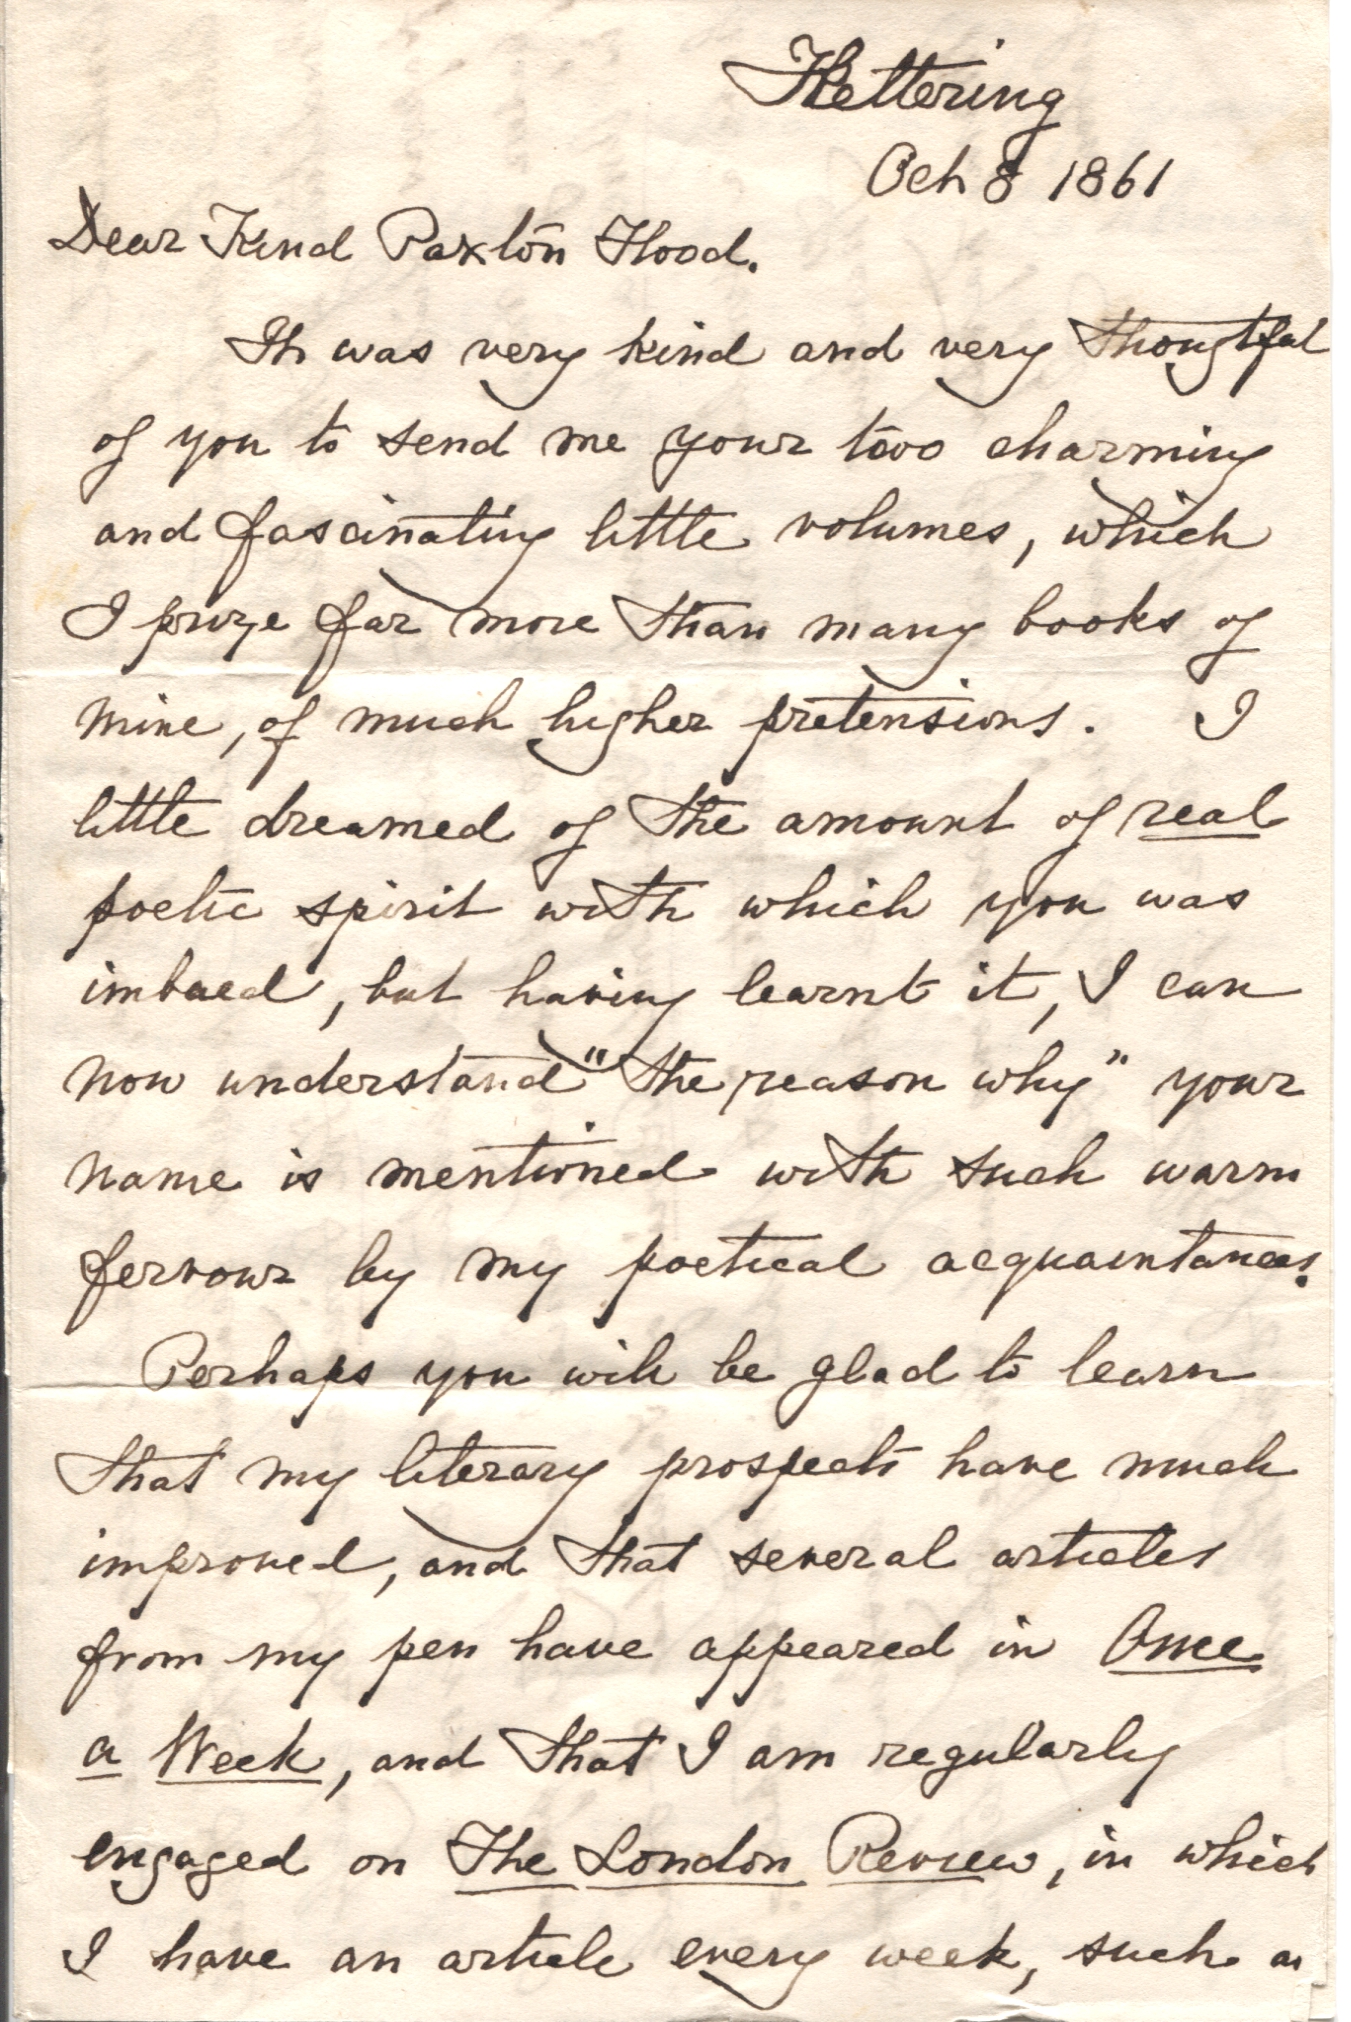 Kettering
Oct 8 1861
Dear Kind Paxton Hood.
It was very kind and very thoughtful
of you to send me your two charming
and fascinating little volumes, which
I prize far more than many books of
mine, of much higher pretensions. I
little dreamed of the amount of real
poetic spirit with which you was
imbued, but having learnt it, I can
now understand "the reason why" your
name is mentioned with such warm
fervour by my poetical acquaintances.
Perhaps you will be glad to learn
that my literary prospects have much
improved, and that several articles
from my pen have appeared in Once
a Week, and that I am regularly
engaged on The London Review, in which
I have an article every week, such as